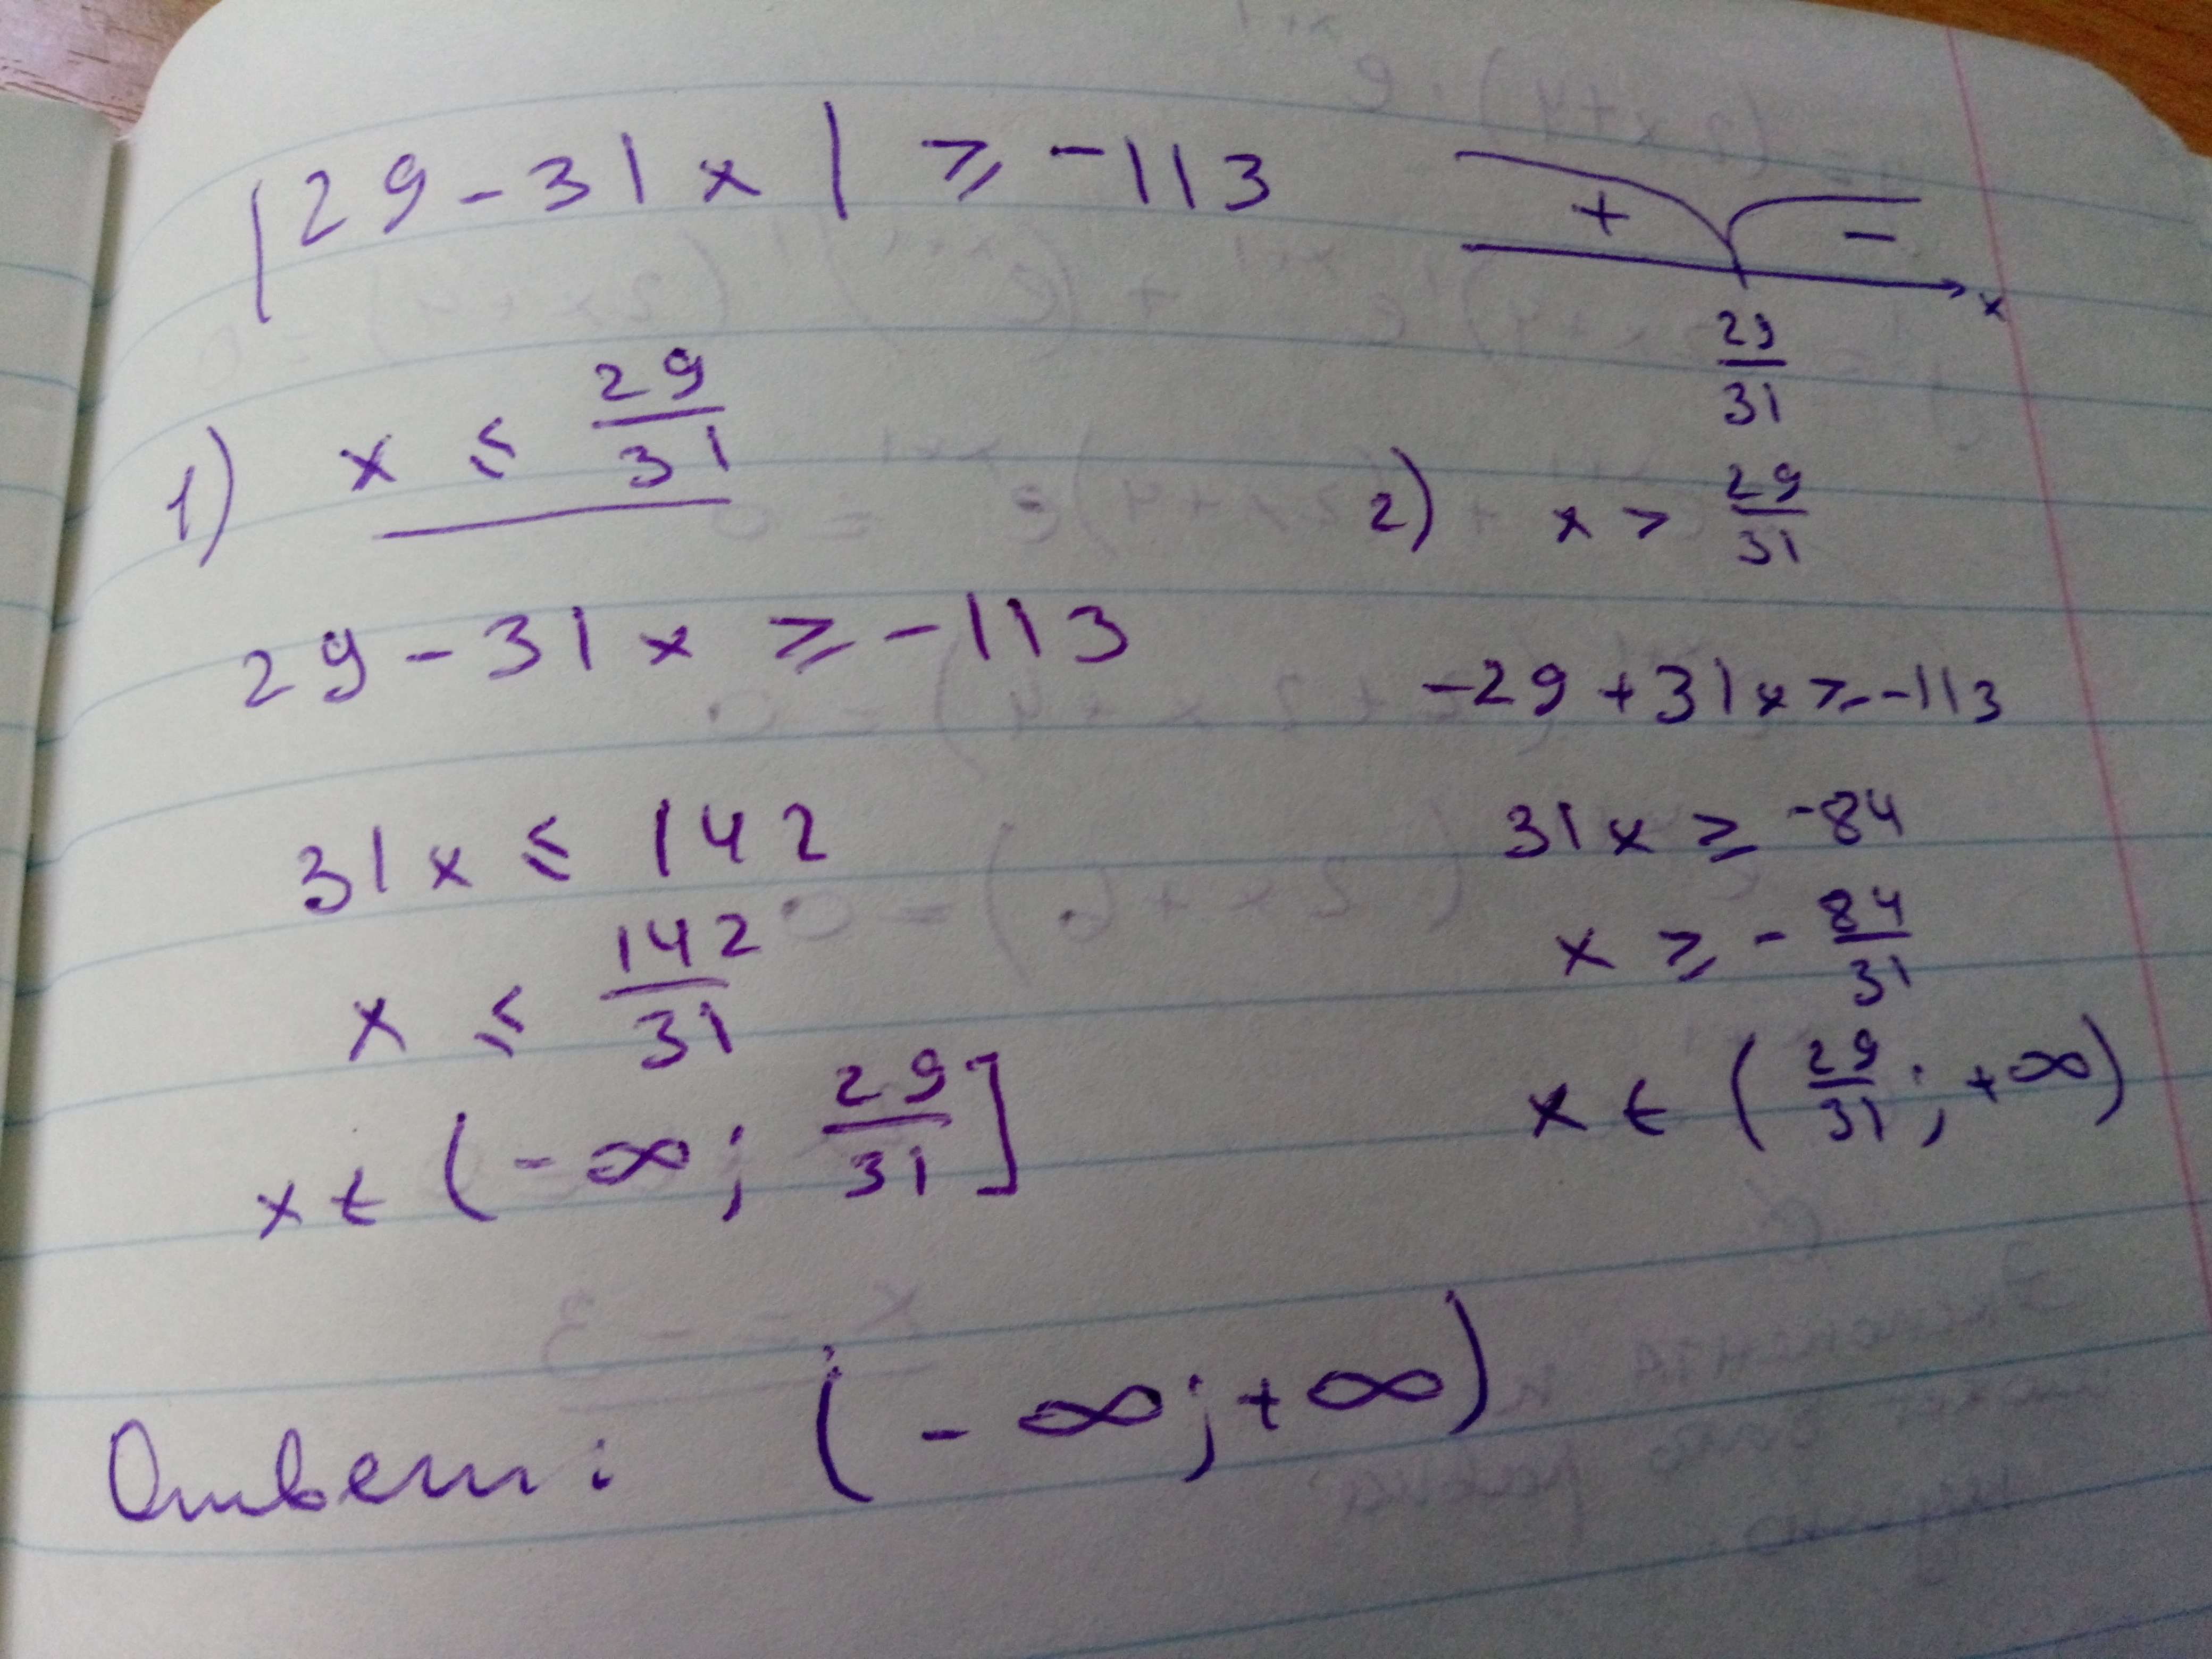 |29-31x| ⩾ -113
+ -
x
29/31
1) x ⩽ 29/31
29-31x ⩾ -113
31x ⩽ 142
x ⩽ 142/31
x ∈ (-∞; 29/31]
2) x > 29/31
-29+31x ⩾ -113
31x ⩾ -84
x ⩾ -84/31
x ∈ (29/31; +∞)
Ответ: (-∞; +∞)